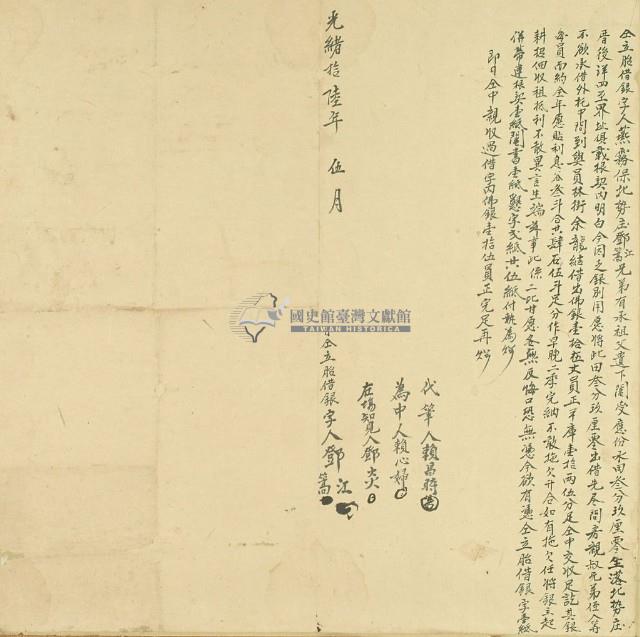 仝立胎借銀字人燕霧保北勢庄鄧江萬兄弟有承祖父遺下鬮受應份水田叁分玖厘零坐落北勢庄
厝後洋四至界址俱載根契內明白今因乏銀別用應將此田叁分玖厘零出借先尽問房親叔兄弟侄人等
不欲承借外托中問到與員林街余龍結借出佛銀壹拾伍大員正平庫壹拾兩伍分足仝中交收足訖其銀
每員面約全年應貼利息谷叁斗合共肆石伍斗足分作早晚二季完納不敢拖欠升合如有拖欠任將銀主起
耕招佃收租抵利不敢異言生端滋事此係二比甘愿各無反悔口恐無憑今欲有憑仝立胎借銀字壹紙
併帶連根契壹紙鬮書壹紙墾字弍紙共伍紙付執為炤
即日仝中親收過借字內佛銀壹拾伍員正完足再炤
代筆人賴昌時
為中人賴心婦
在場知見人鄧火
光緒拾陸年 伍月 日仝立胎借銀字人鄧江萬
國史館臺灣文獻館
TAIWAN HISTORICA